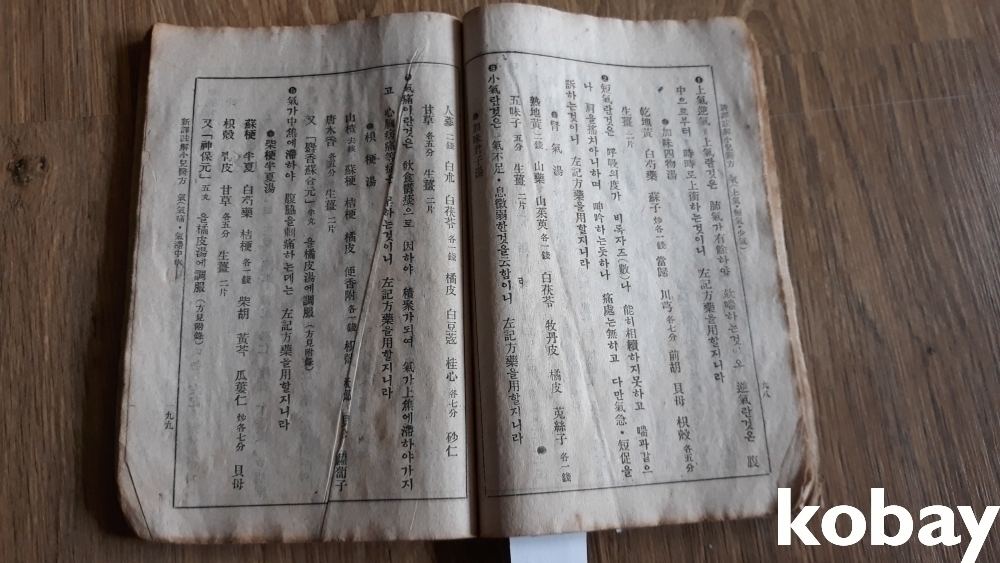 新譯註解小兒醫方 氣(上氣·短氣·少氣)
上氣逆氣 上氣란것은 肺氣가 有餘하야 것 오 逆氣란것은 腹
中으로부터 時時로上衝하는것이니 左記方藥을用할지니라
加味四物湯
乾地黃 白芍藥 蘇子 炒各一錢 當歸 川芎 各七分 前胡 貝母 枳殼 各五分
生薑 二片
短氣란것은 呼吸의度가 비록자즈(數)나 能히相續하지못하고 喘과같으
나 肩을搖치아니하며 呻吟하는듯하나 痛處는無하고 다만氣急·短促을
訴하는것이니 左記方藥을用할지니라
腎氣湯
熟地黃 二錢 山藥 山茱萸 各一錢 白茯苓 牧丹皮 橘皮 兎絲子 各一錢
五味子 五分 生薑 二片
小氣란것은 氣不足·息微弱한것을云함이니 左記方藥을用할지니라
人蔘 二錢 白朮 白茯苓 各一錢 橘皮 白豆蔲 桂心 各七分 砂仁
甘草 各五分 生薑 二片
氣痛이란것은 飮食鬱痰으로 因하야 積聚가되여 氣가上焦에滯하야가지
고 心胸痞痛等症 하는것이니 左記方藥을用할지니라
枳梗湯
山楂 去核 蘇梗 桔梗 橘皮 便香附 各一錢
唐木香 各五分 生薑 二片
又「麝香蘇合元」을橘皮湯에調服(方見附錄)
氣가中焦에滯하야 腹脇을刺痛하는데는 左記方藥을用할지니라
柴梗半夏湯
蘇梗 半夏 白芍藥 桔梗 各一錢 柴胡 黃芩 瓜蔞仁 炒各七分 貝母
枳殼 甘草 各五分 生薑 二片
又「神保元」五丸 을橘皮湯에調服(方見附錄)
新譯註解小兒醫方 氣(氣痛·氣滯中焦)
九九
kobay